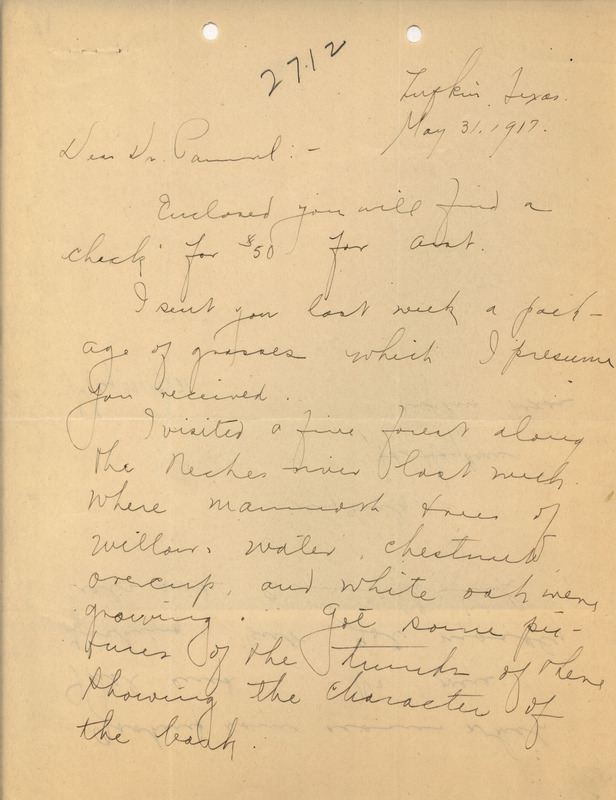 2712
Lufkin, Texas.
May 31, 1917.
Dear Dr. Pammel: -
Enclosed you will find a
check for $50 for acct.
I sent you last week a pack-
age of grasses which I presume
you received.
I visited a fine forest along
the Neches river last week
where mammoth trees of
willow, water, chestnut
overcup, and white oak were
growing. Got some pic-
tures of the trunks of them
showing the character of
the bark.